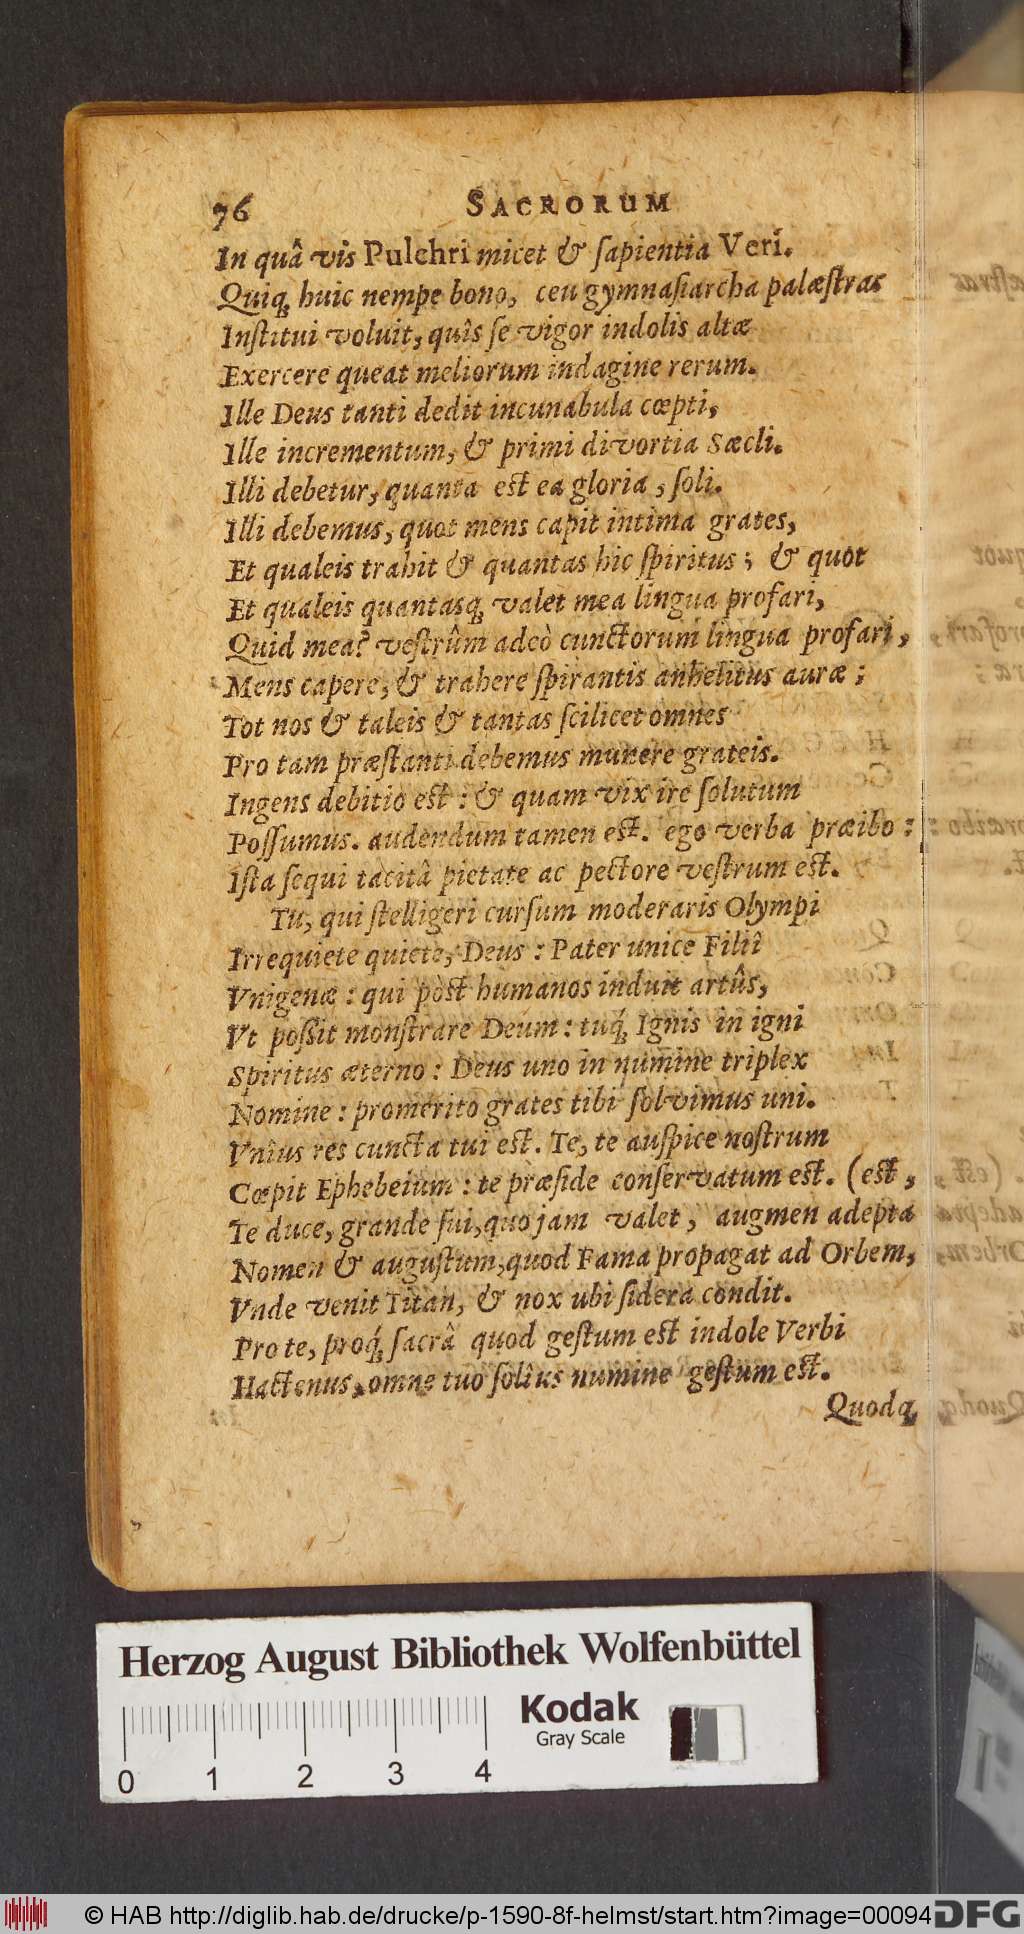 76 SACRORUM
In quâ vis Pulchri micet & ſapientia Veri.
Quiq; huic nempe bono, ceu gymnaſiarcha palæſtras
Inſtitui voluit, quîs ſe vigor indolis altæ
Exercere queat meliorum indagine rerum.
Ille Deus tanti dedit incunabula cœpti,
Ille incrementum, & primi divortia Sæcli.
Illi debetur, quanta eſt ea gloria, ſoli.
Illi debemus, quot mens capit intima grates,
Et qualeis trahit & quantas hic ſpiritus; & quot
Et qualeis quantasq; valet mea lingua profari,
Quid mea? veſtrûm adeò cunctorum lingua profari,
Mens capere, & trahere ſpirantis anhelitus auræ;
Tot nos & taleis & tantas ſcilicet omnes
Pro tam præſtanti debemus munere grateis.
Ingens debitio eſt: & quam vix ire ſolutum
Poſſumus. audendum tamen eſt. ego verba præibo:
Iſta ſequi tacitâ pietate ac pectore veſtrum eſt.
Tu, qui ſtelligeri curſum moderaris Olympi
Irrequiete quiete, Deus: Pater unice Filiî
Vnigenæ: qui poſt humanos induit artûs,
Vt poſſit monſtrare Deum: tuq́; Ignis in igni
Spiritus æterno: Deus uno in numine triplex
Nomine: promerito grates tibi ſolvimus uni.
Vnîus res cuncta tui eſt. Te, te auſpice noſtrum
Cœpit Ephebeium: te præſide conſervatum eſt. (eſt,
Te duce, grande ſui, quo jam valet, augmen adepta
Nomen & auguſtum, quod Fama propagat ad Orbem,
Vnde venit Titan, & nox ubi ſidera condit.
Pro te, proq́; ſacrâ quod geſtum eſt indole Verbi
Hactenus, omne tuo ſolîus numine geſtum eſt.
Quodq;
Herzog August Bibliothek Wolfenbüttel
Kodak
Gray Scale
0 1 2 3 4
© HAB http://diglib.hab.de/drucke/p-1590-8f-helmst/start.htm?image=00094
DFG